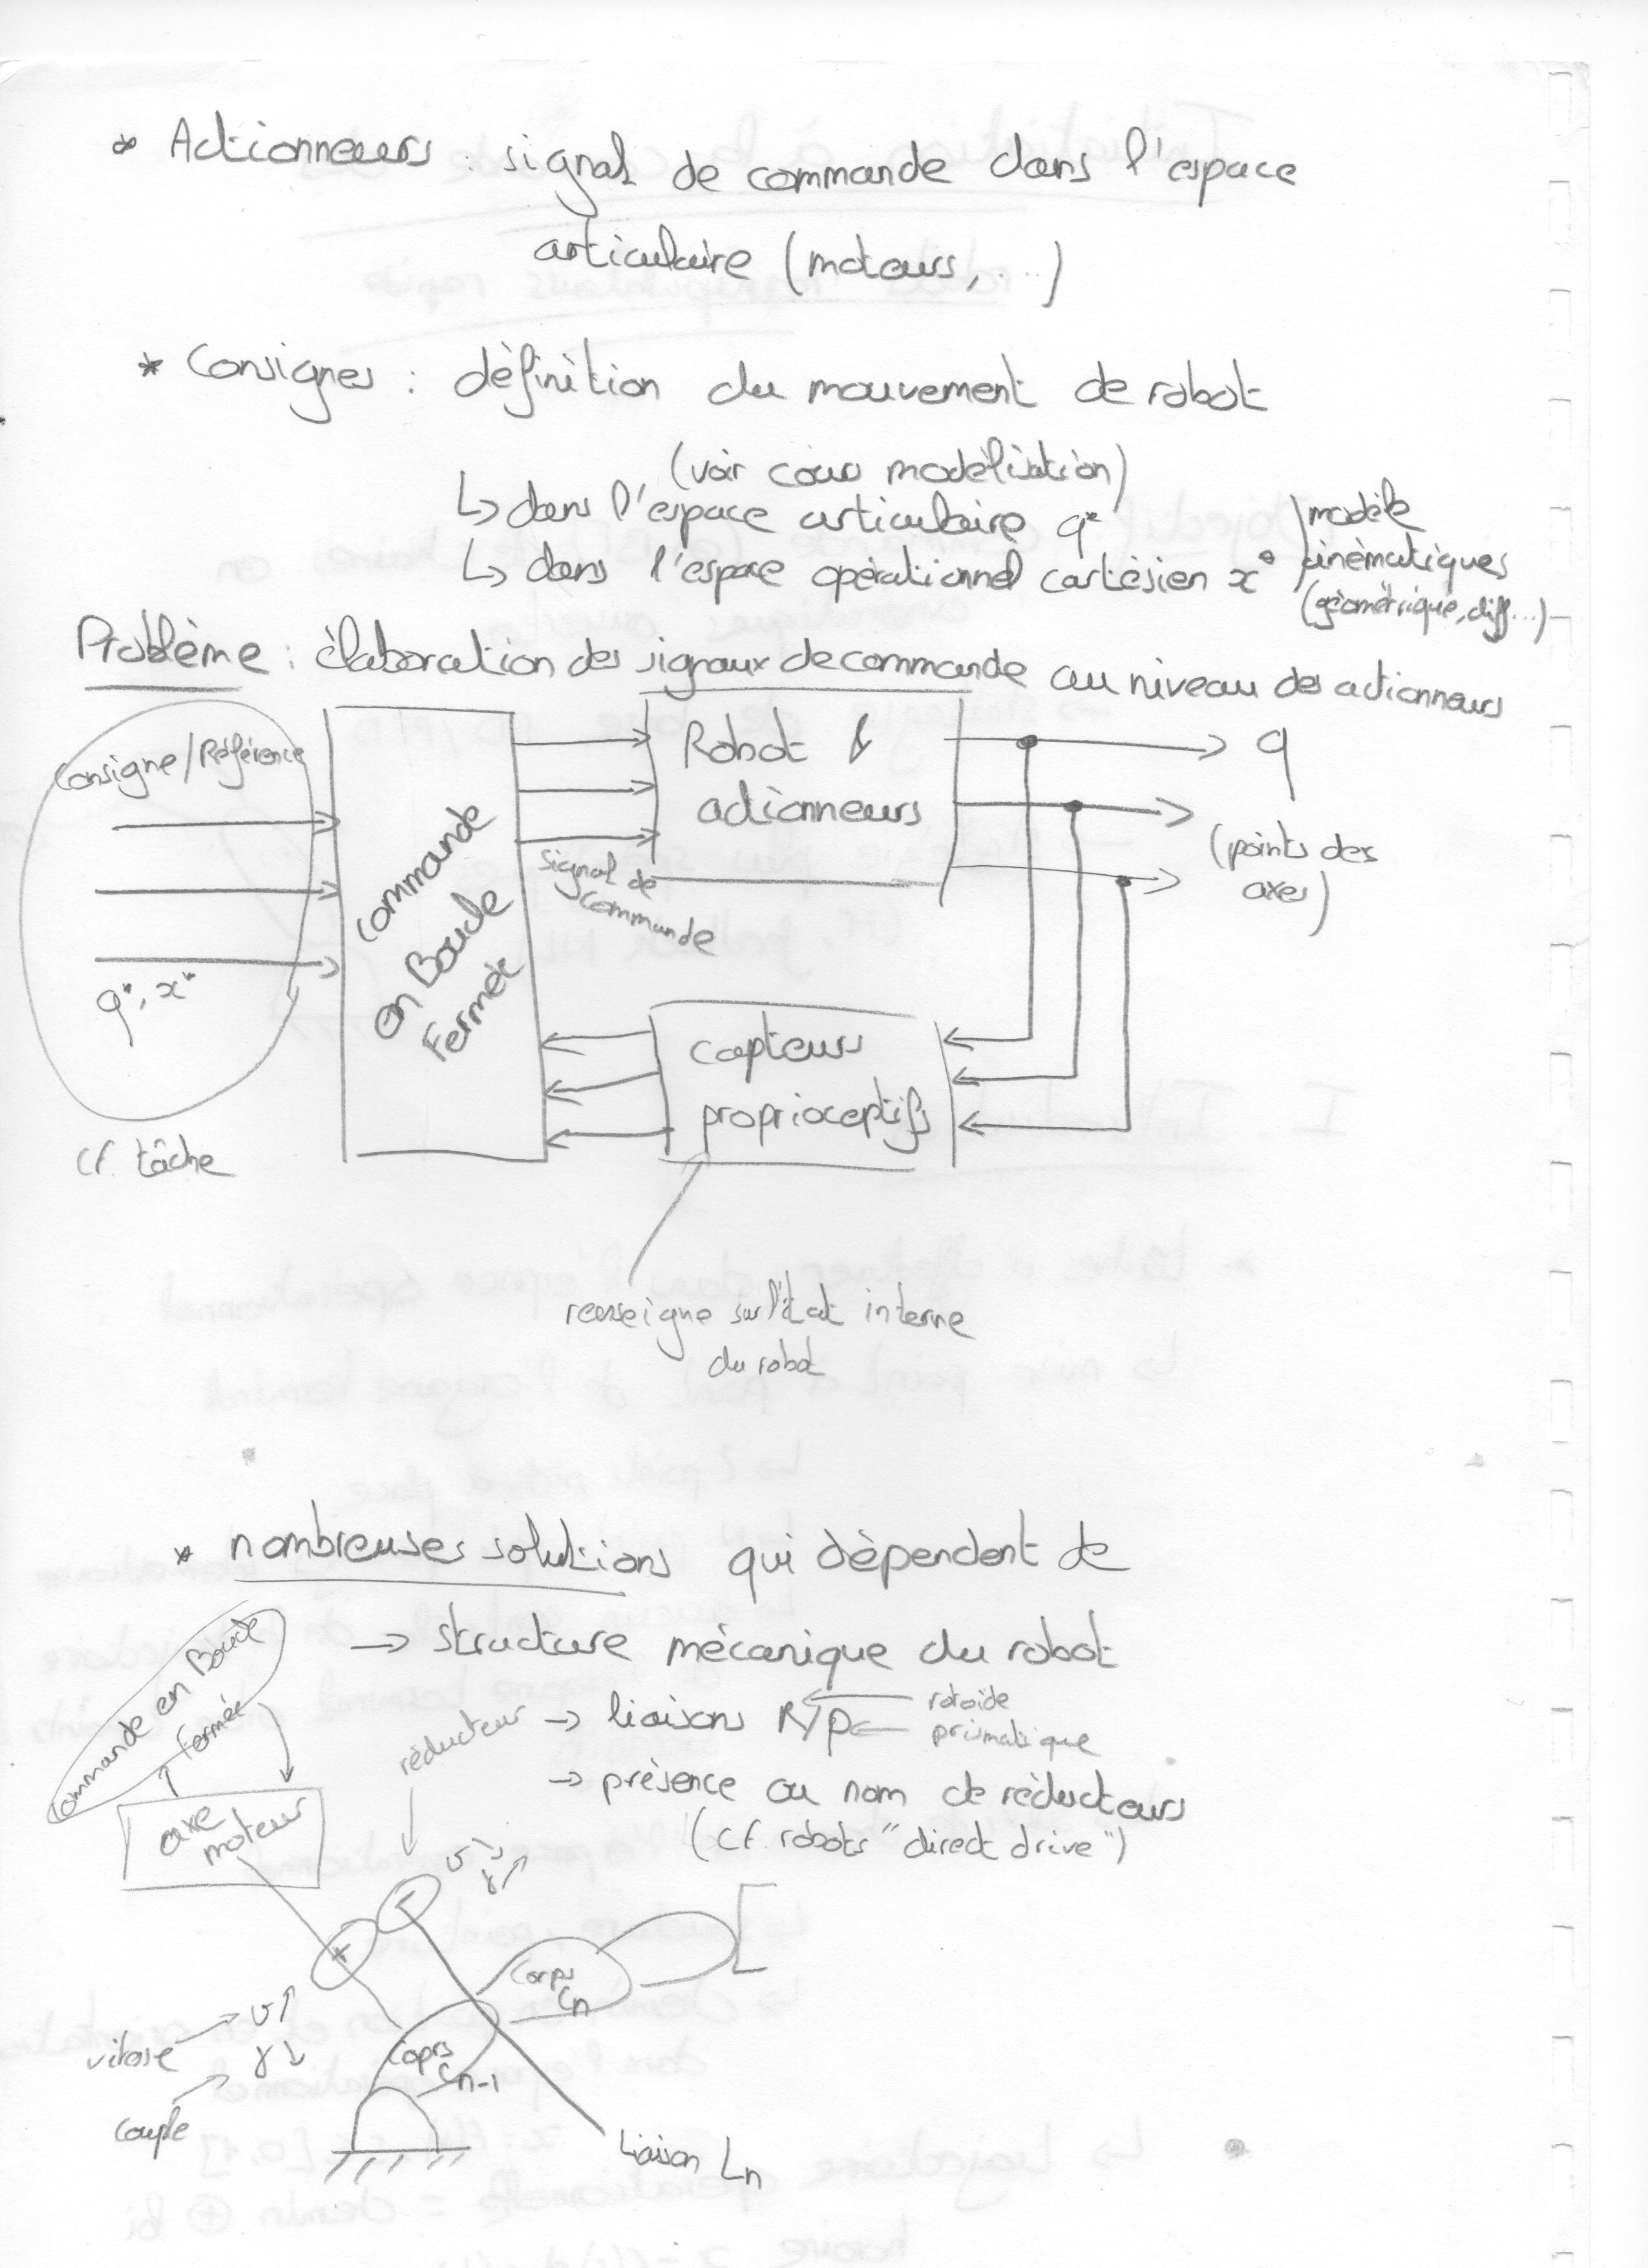 * Actionneurs : signal de commande dans l'espace
articulaire (moteurs, ...)
* Consignes : définition du mouvement de robot
(voir cours modélisation)
↳ dans l'espace articulaire q*
↳ dans l'espace opérationnel cartésien x*
modèle
cinématiques
(géométrique, diff...)
Problème : élaboration des signaux de commande au niveau des actionneurs
Consigne/Référence
q*, x*
cf. tâche
Commande
en Boucle
Fermée
signal de
commande
Robot &
actionneurs
q
(points des
axes)
capteurs
proprioceptifs
renseigne sur l'état interne
du robot
* nombreuses solutions qui dépendent de
→ structure mécanique du robot
→ liaisons R/P
rotoïde
prismatique
→ présence ou nom de réducteurs
(cf. robots "direct drive")
Commande en Boucle
fermée
axe
moteur
réducteur
v ↘
γ ↗
-
+
vitesse
v ↗
γ ↘
couple
Corps
Cn
Coprs
Cn-1
Liaison Ln